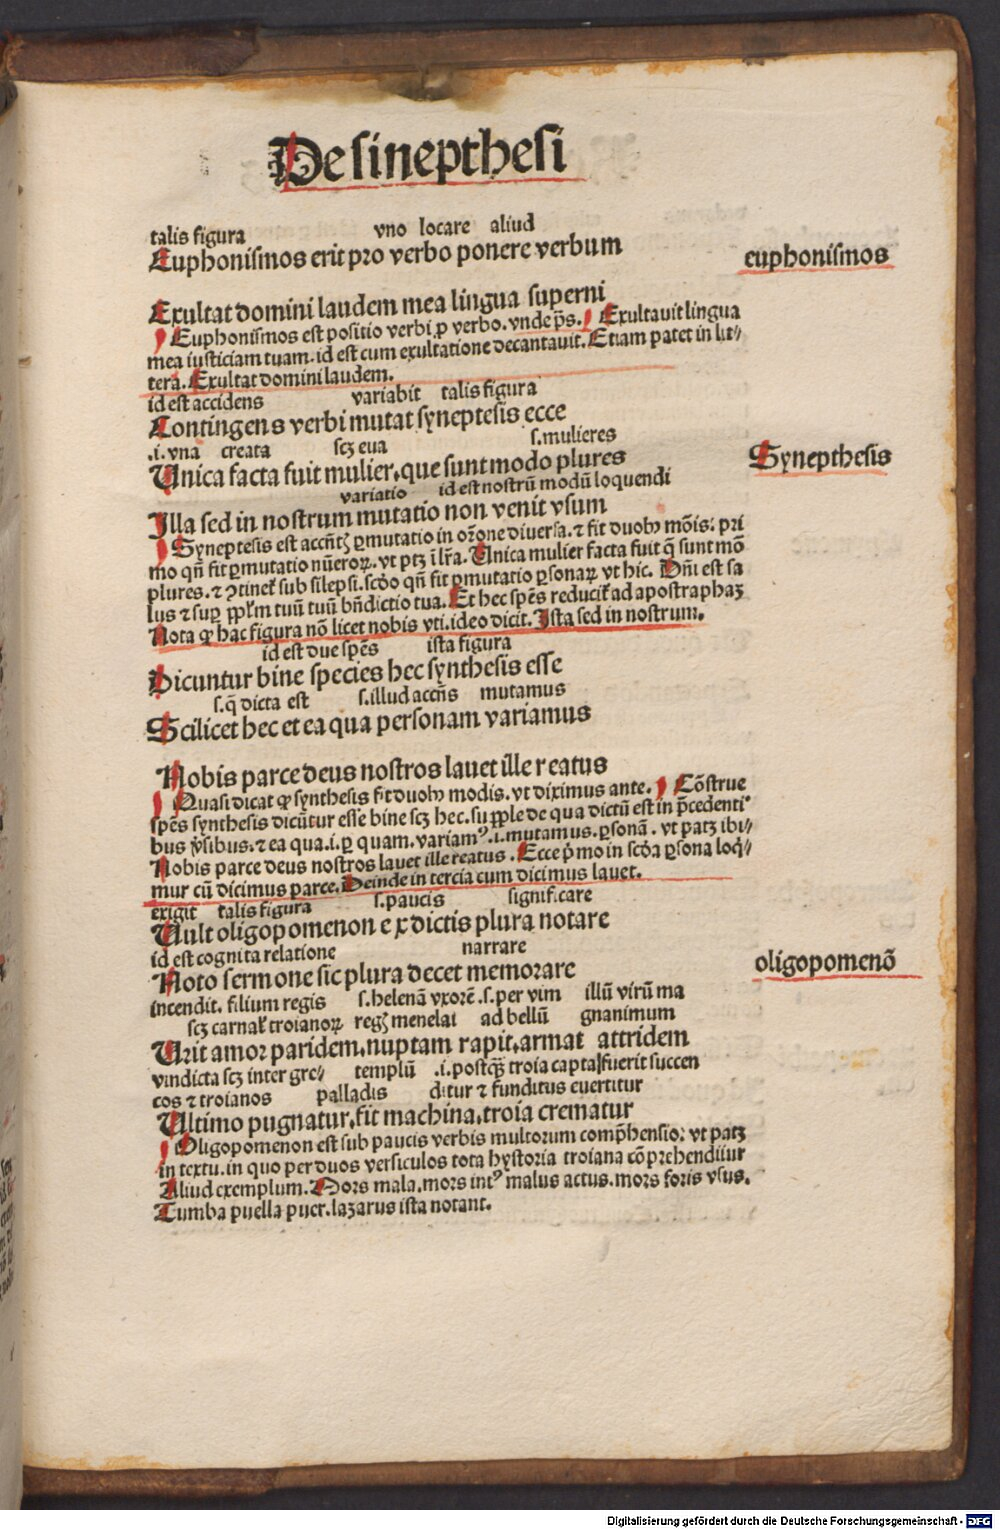 De sinepthesi
talis figura vno locare aliud
Euphonismos erit pro verbo ponere verbum
euphonismos
Exultat domini laudem mea lingua superni
Euphonismos est positio verbi ꝓ verbo. vnde p̄s. Exultauit lingua
mea iusticiam tuam. id est cum exultatione decantauit. Etiam patet in lit⸗
tera. Exultat domini laudem.
id est accidens variabit talis figura
Contingens verbi mutat syneptesis ecce
.i. vna creata scꝫ eua s. mulieres
Synepthesis
Unica facta fuit mulier, que sunt modo plures
variatio id est nostrū modū loquendi
Illa sed in nostrum mutatio non venit vsum
Syneptesis est accn̄tꝭ ꝑmutatio in or̄one diuersa. ⁊ fit duobꝰ mōis: pri
mo qn̄ fit ꝑmutatio nūeroꝝ. vt ptꝫ ī lr̄a. Unica mulier facta fuit q̄ sunt mō
plures. ⁊ ꝯtinet᷑ sub silepsi. scd̓o qn̄ fit ꝑmutatio ꝑsonaꝝ vt hic. Dn̄i est sa
lus ⁊ suꝑ ppl̓m tuū tuū bn̄dictio tua. Et hec sp̄es reducit᷑ ad apostrapham
Nota ꝙ hac figura nō licet nobis vti. ideo dicit. Ista sed in nostrum.
id est due sp̄es ista figura
Dicuntur bine species hec synthesis esse
s. q̄ dicta est s. illud accn̄s mutamus
Scilicet hec et ea qua personam variamus
Nobis parce deus nostros lauet ille reatus
Quasi dicat ꝙ synthesis fit duobꝰ modis. vt diximus ante. Cōstrue
sp̄es synthesis dicūtur esse bine scꝫ hec. supple de qua dictū est in p̄cedenti⸗
bus v̓sibus. ⁊ ea qua. i. ꝑ quam. variamꝰ. i. mutamus. ꝑsonā. vt patꝫ ibi⸗
Nobis parce deus nostros lauet ille reatus. Ecce p̓mo in scd̓a ꝑsona loq̓⸗
mur cū dicimus parce. Deinde in tercia cum dicimus lauet.
exigit talis figura s. paucis significare
Uult oligopomenon ex dictis plura notare
id est cognita relatione narrare
oligopomenō
Noto sermone sic plura decet memorare
incendit. filium regis s. helenā vxorē .s. per vim illū virū ma
scꝫ carnal̓ troianoꝝ regꝭ menelai ad bellū gnanimum
Urit amor paridem, nuptam rapit, armat attridem
vindicta scꝫ inter gre⸗ templū .i. postqꝫ troia capta fuerit succen
cos ⁊ troianos palladis ditur ⁊ funditus euertitur
Ultimo pugnatur, fit machina, troia crematur
Oligopomenon est sub paucis verbis multorum comp̄hensio: vt patꝫ
in textu. in quo per duos versiculos tota hystoria troiana cōprehenditur
Aliud exemplum. Mors mala, mors intꝰ malus actus. mors foris vsus.
Tumba puella puer. lazarus ista notant.
Digitalisierung gefördert durch die Deutsche Forschungsgemeinschaft - DFG